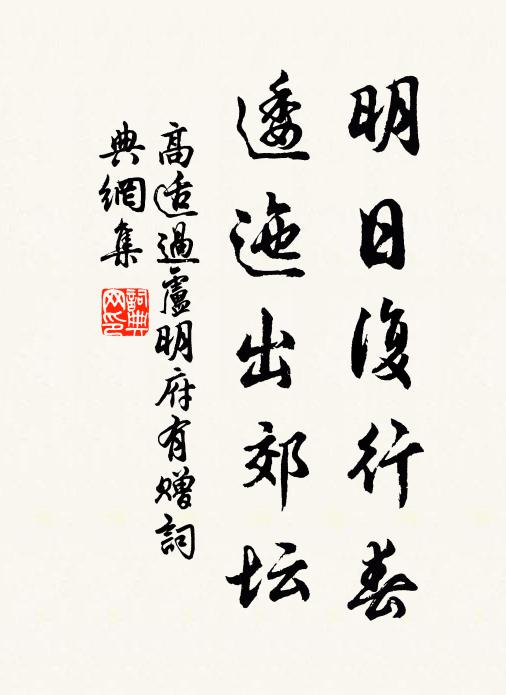 明日復行春
逶迤出郊坛
高适過盧明府有贈詞
典網集
詞典网印